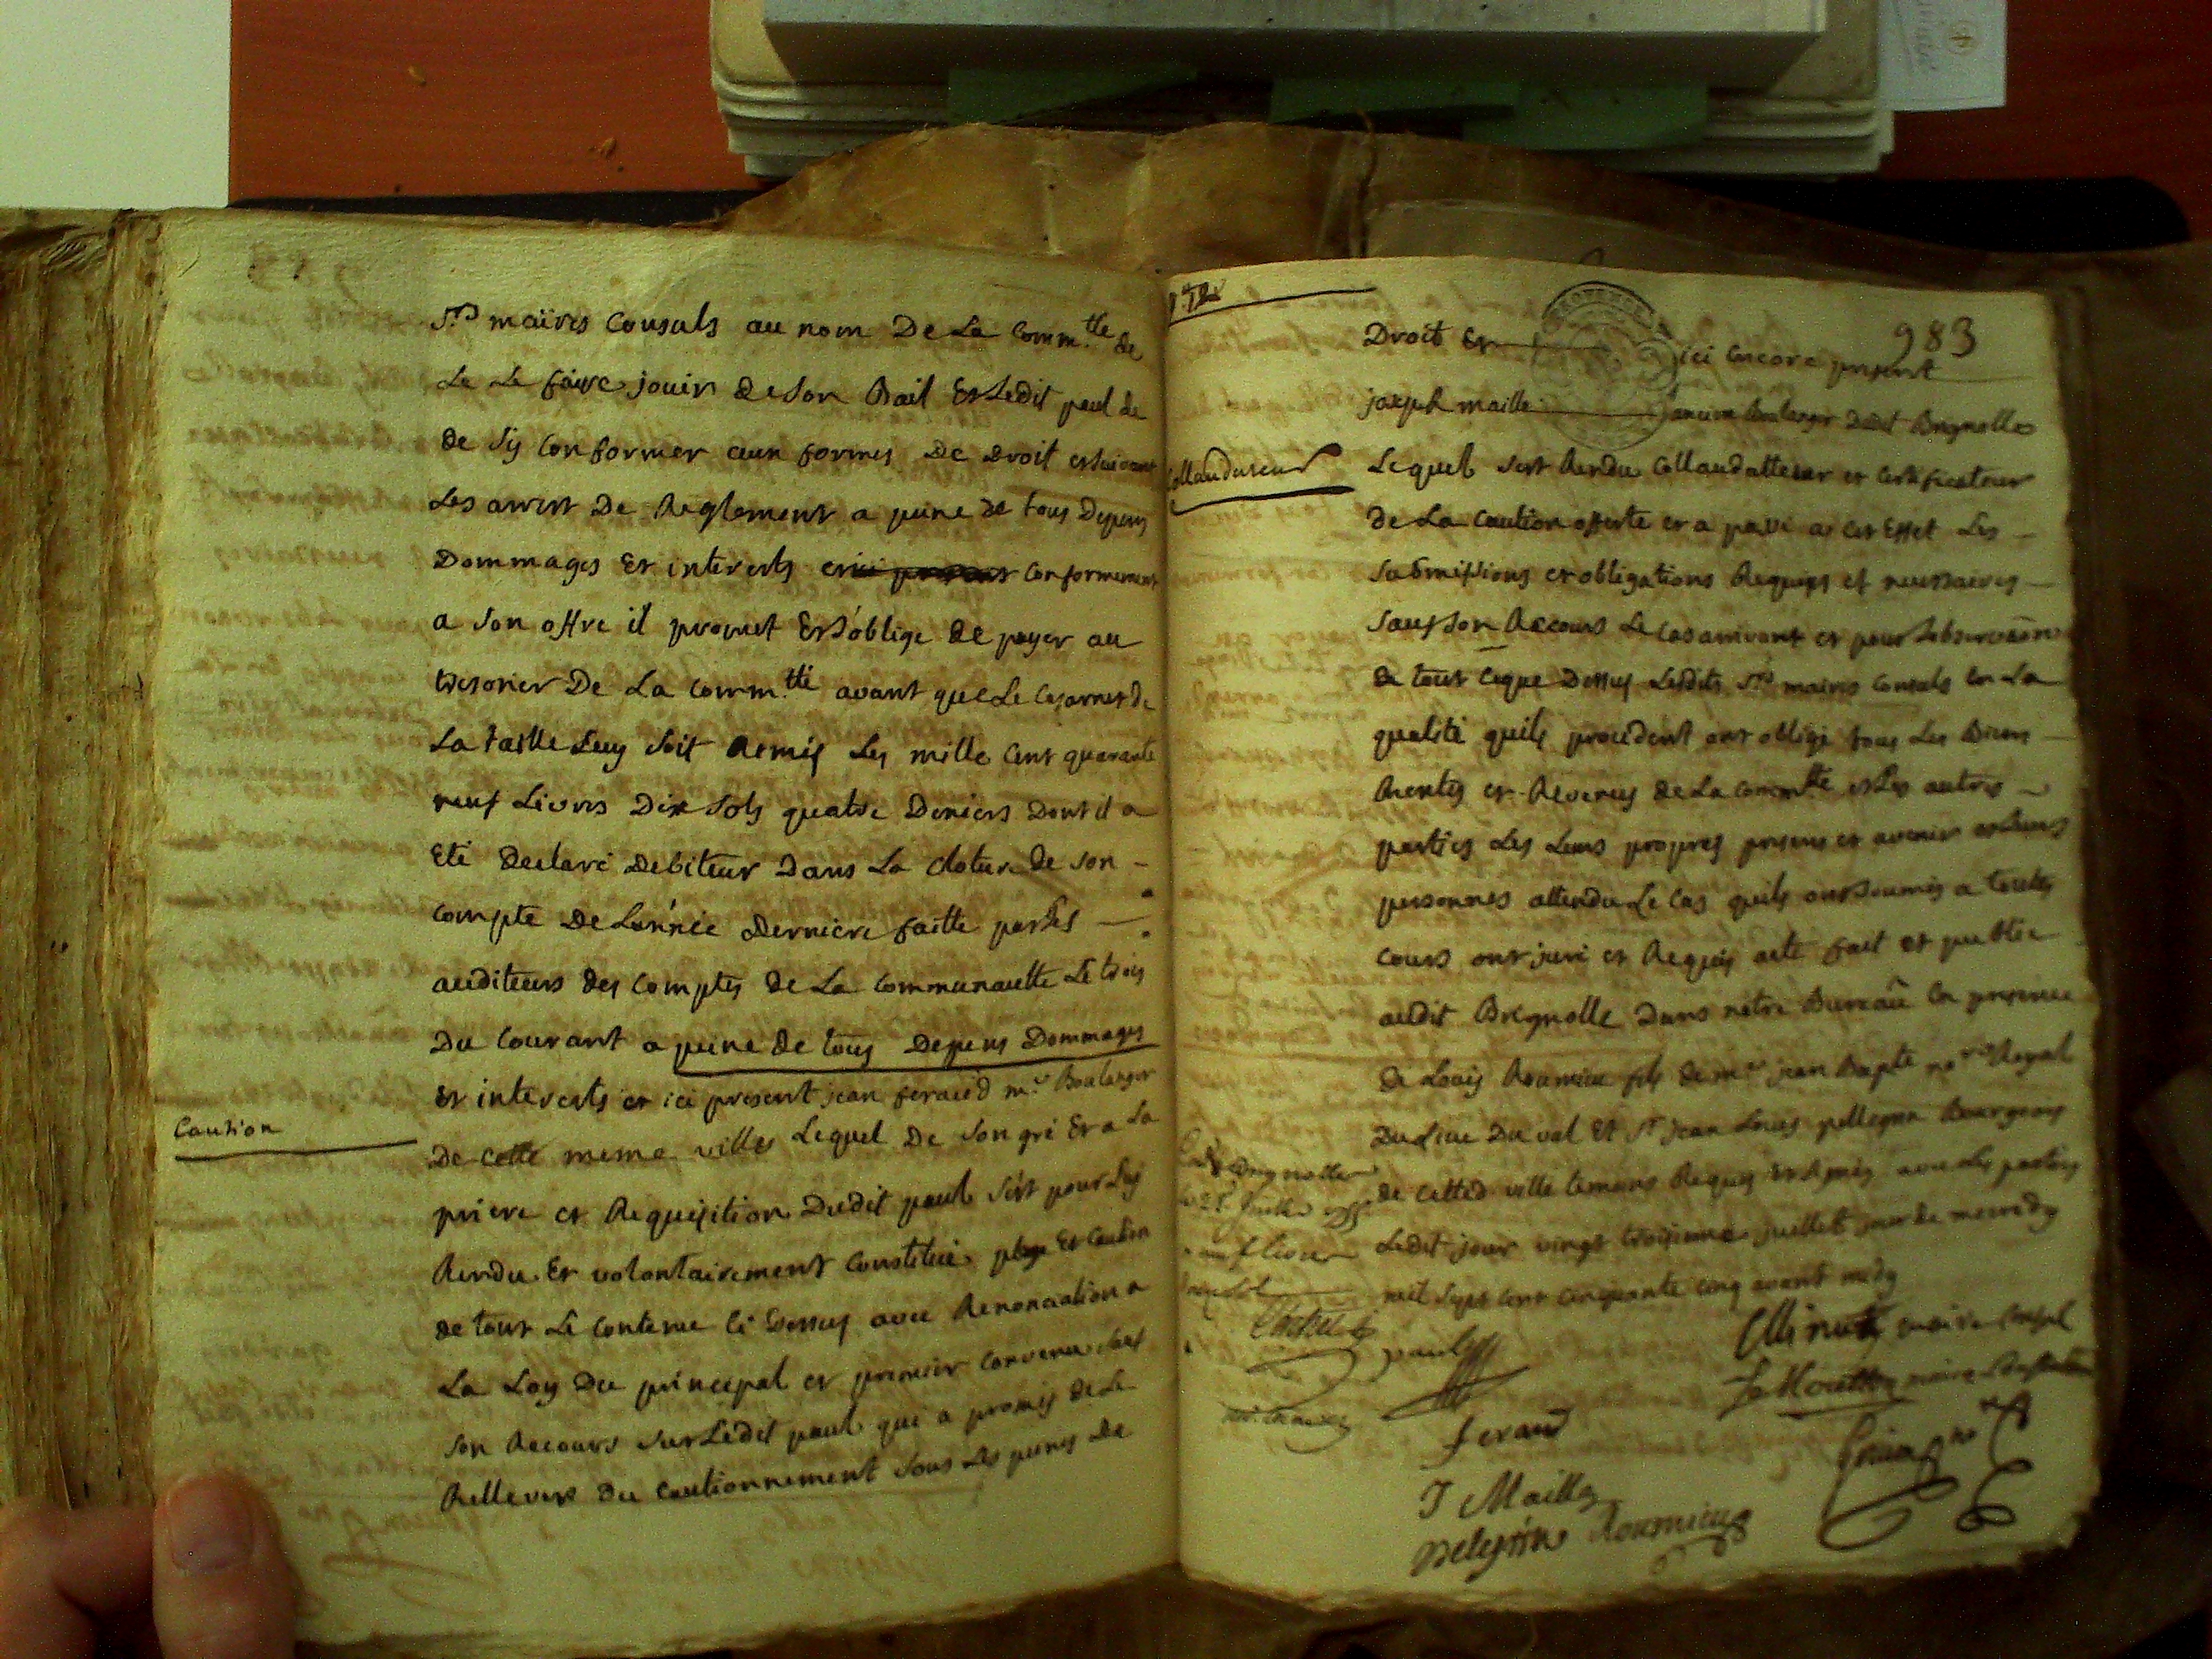 Srs maires Consuls au nom De La Comm.tte de
Le Le faire jouir de son Bail Et Ledit paul de
de s'y Conformer aux formes De Droit et suivant
Les arrest De Reglement a peine de tous Depens
Dommages Et interests conformement
a son offre il promet Et s'oblige de payer au
tresorier De La Comm.tté avant que Le Cazernet de
La taille Luy soit Remis Les mille Cent quarante
neuf Livres Dix sols quatre Deniers Dont il a
Eté Declaré Debiteur Dans La Cloture de son -
Compte De L'année Derniere faitte par Les
auditeurs des Comptes de La Communautte Le trois
Du Courant a peine de tous Depens Dommages
Et interests et ici present jean feraud me Boulanger
De Cette meme ville Lequel De son gré Et a La
priere et Requisition Dudit paul s'est pour Luy
Rendu Et volontairement Constitué plege Et Caution
de tout Le Contenu Ci Dessus avec Renonciation a
La Loy Du principal et premier Convenu sauf
son Recours sur Ledit paul qui a promis de Le
Rellever du Cautionnement sous Les peines De
Caution
983
Droit Et ici encore present
joseph maille ancien boulanger dudit Brignolles
Collaudateur
Lequel s'est Rendu Collaudatteur et Certificateur
de La Caution offerte et a passé a cet Effet Les
submissions et obligations Requises et necessaires
sauf son Recours Le Cas arrivant et pour L'observaõn
de tout Ceque Dessus Lesdits Srs maires Consuls En La
qualité quils procedent ont obligé tous Les Biens
Rentes et Revenus de La Commtte et Les autres
parties Les Leurs propres presens et avenir et Leurs
personnes attendu Le Cas quils ont soumis a toutes
Cours ont juré et Requis acte fait et publié
audit Brignolle Dans notre Bureau En presence
de Louis Roumieu fils de me jean Bapte nore Royal
Du Luc Du val Et Sr jean Louis pellegrin Bourgeois
de Cetted ville temoins Requis Et signés avec Les parties
Ledit jour vingt troisieme juillet jour de mercredy
mil sept cent cinquante cinq avant midy
a Brignolle
Juillet 1755
paul
Minuty maire Consul
maire
feraud
J Maille
pelegrin Roumieu